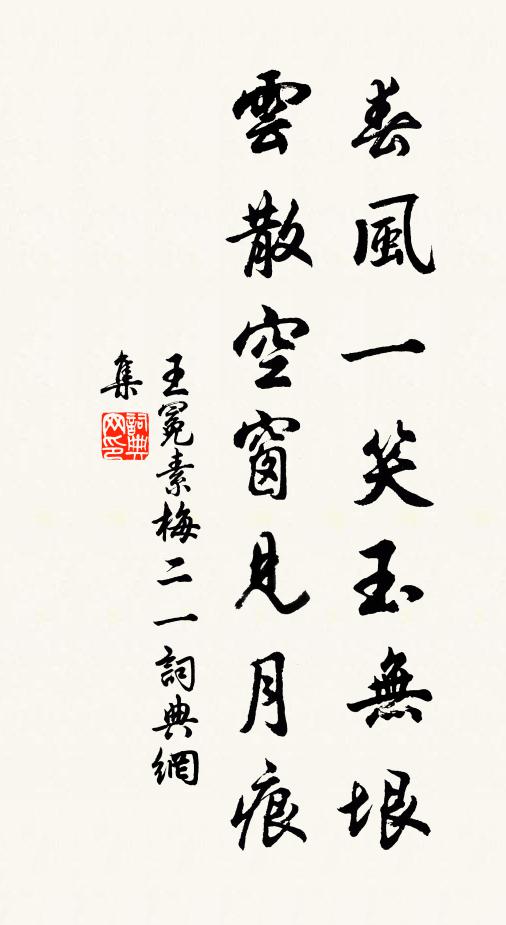 春風一笑玉無垠
雲散空窗見月痕
王冕素梅二一詞典網
集
詞典網印